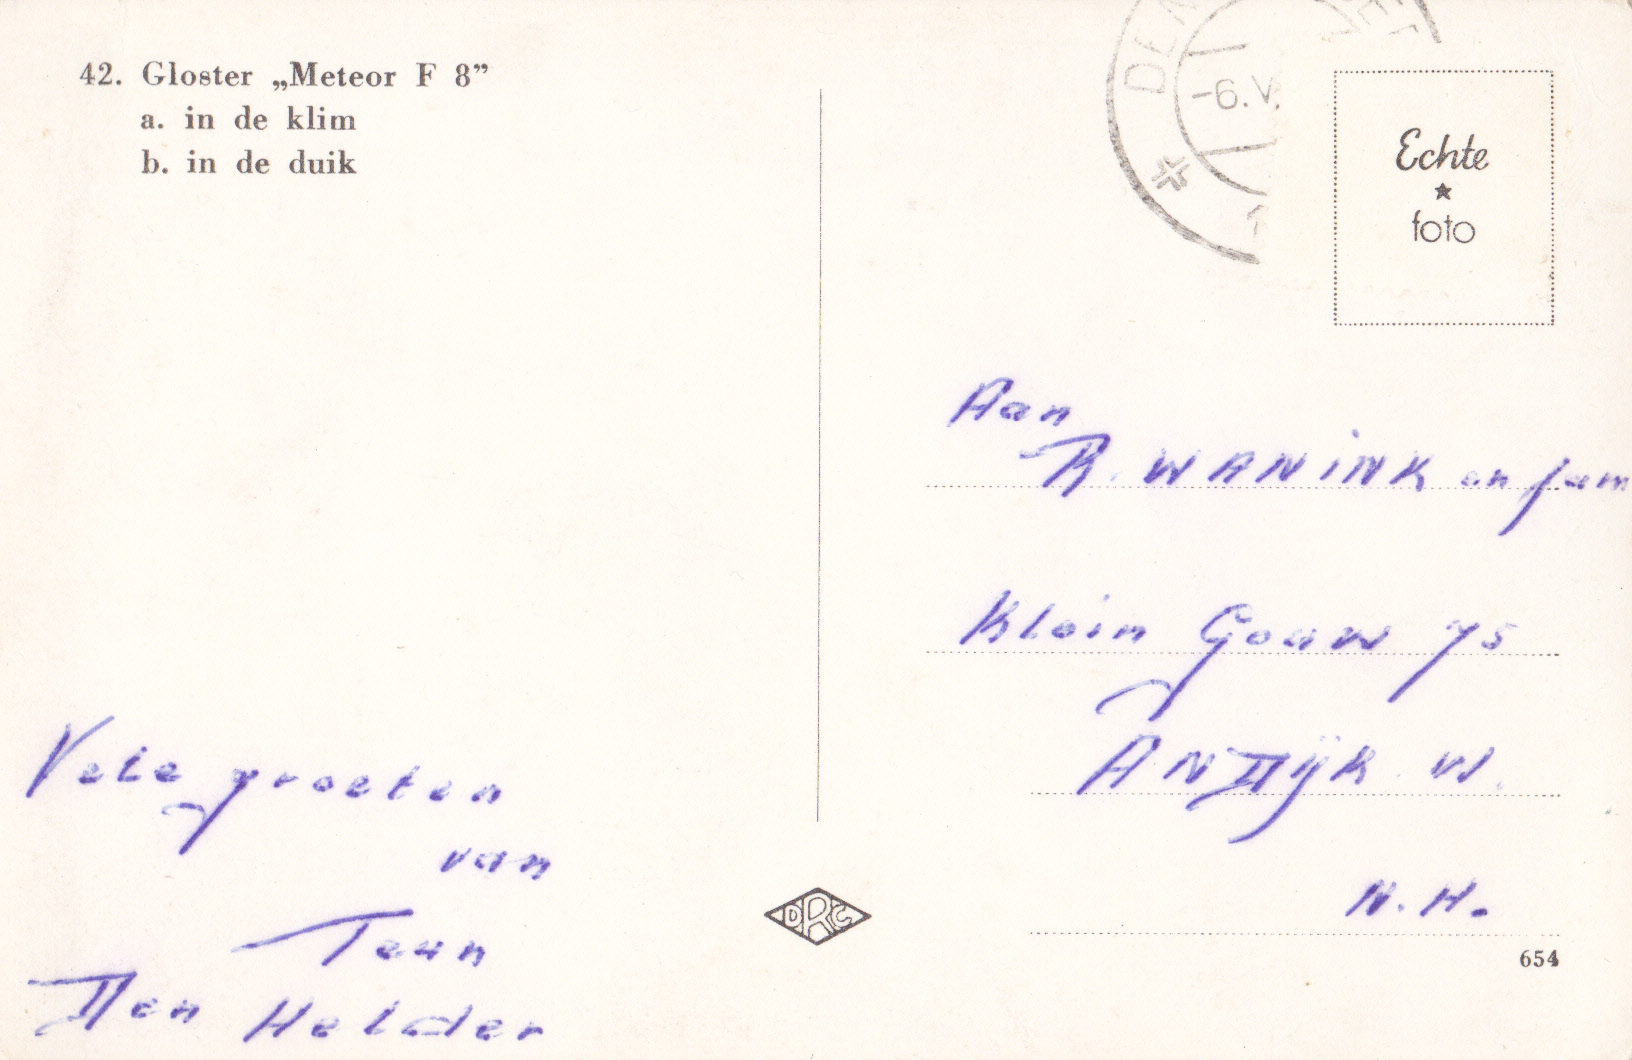 42. Gloster „Meteor F 8”
a. in de klim
b. in de duik
DEN
-6.V.
Echte
foto
Aan
R. WANINK en fam
Klein Gouw 75
ANDijK W.
N.H.
Vele groeten
van
Teun
Den Helder
DRC
654